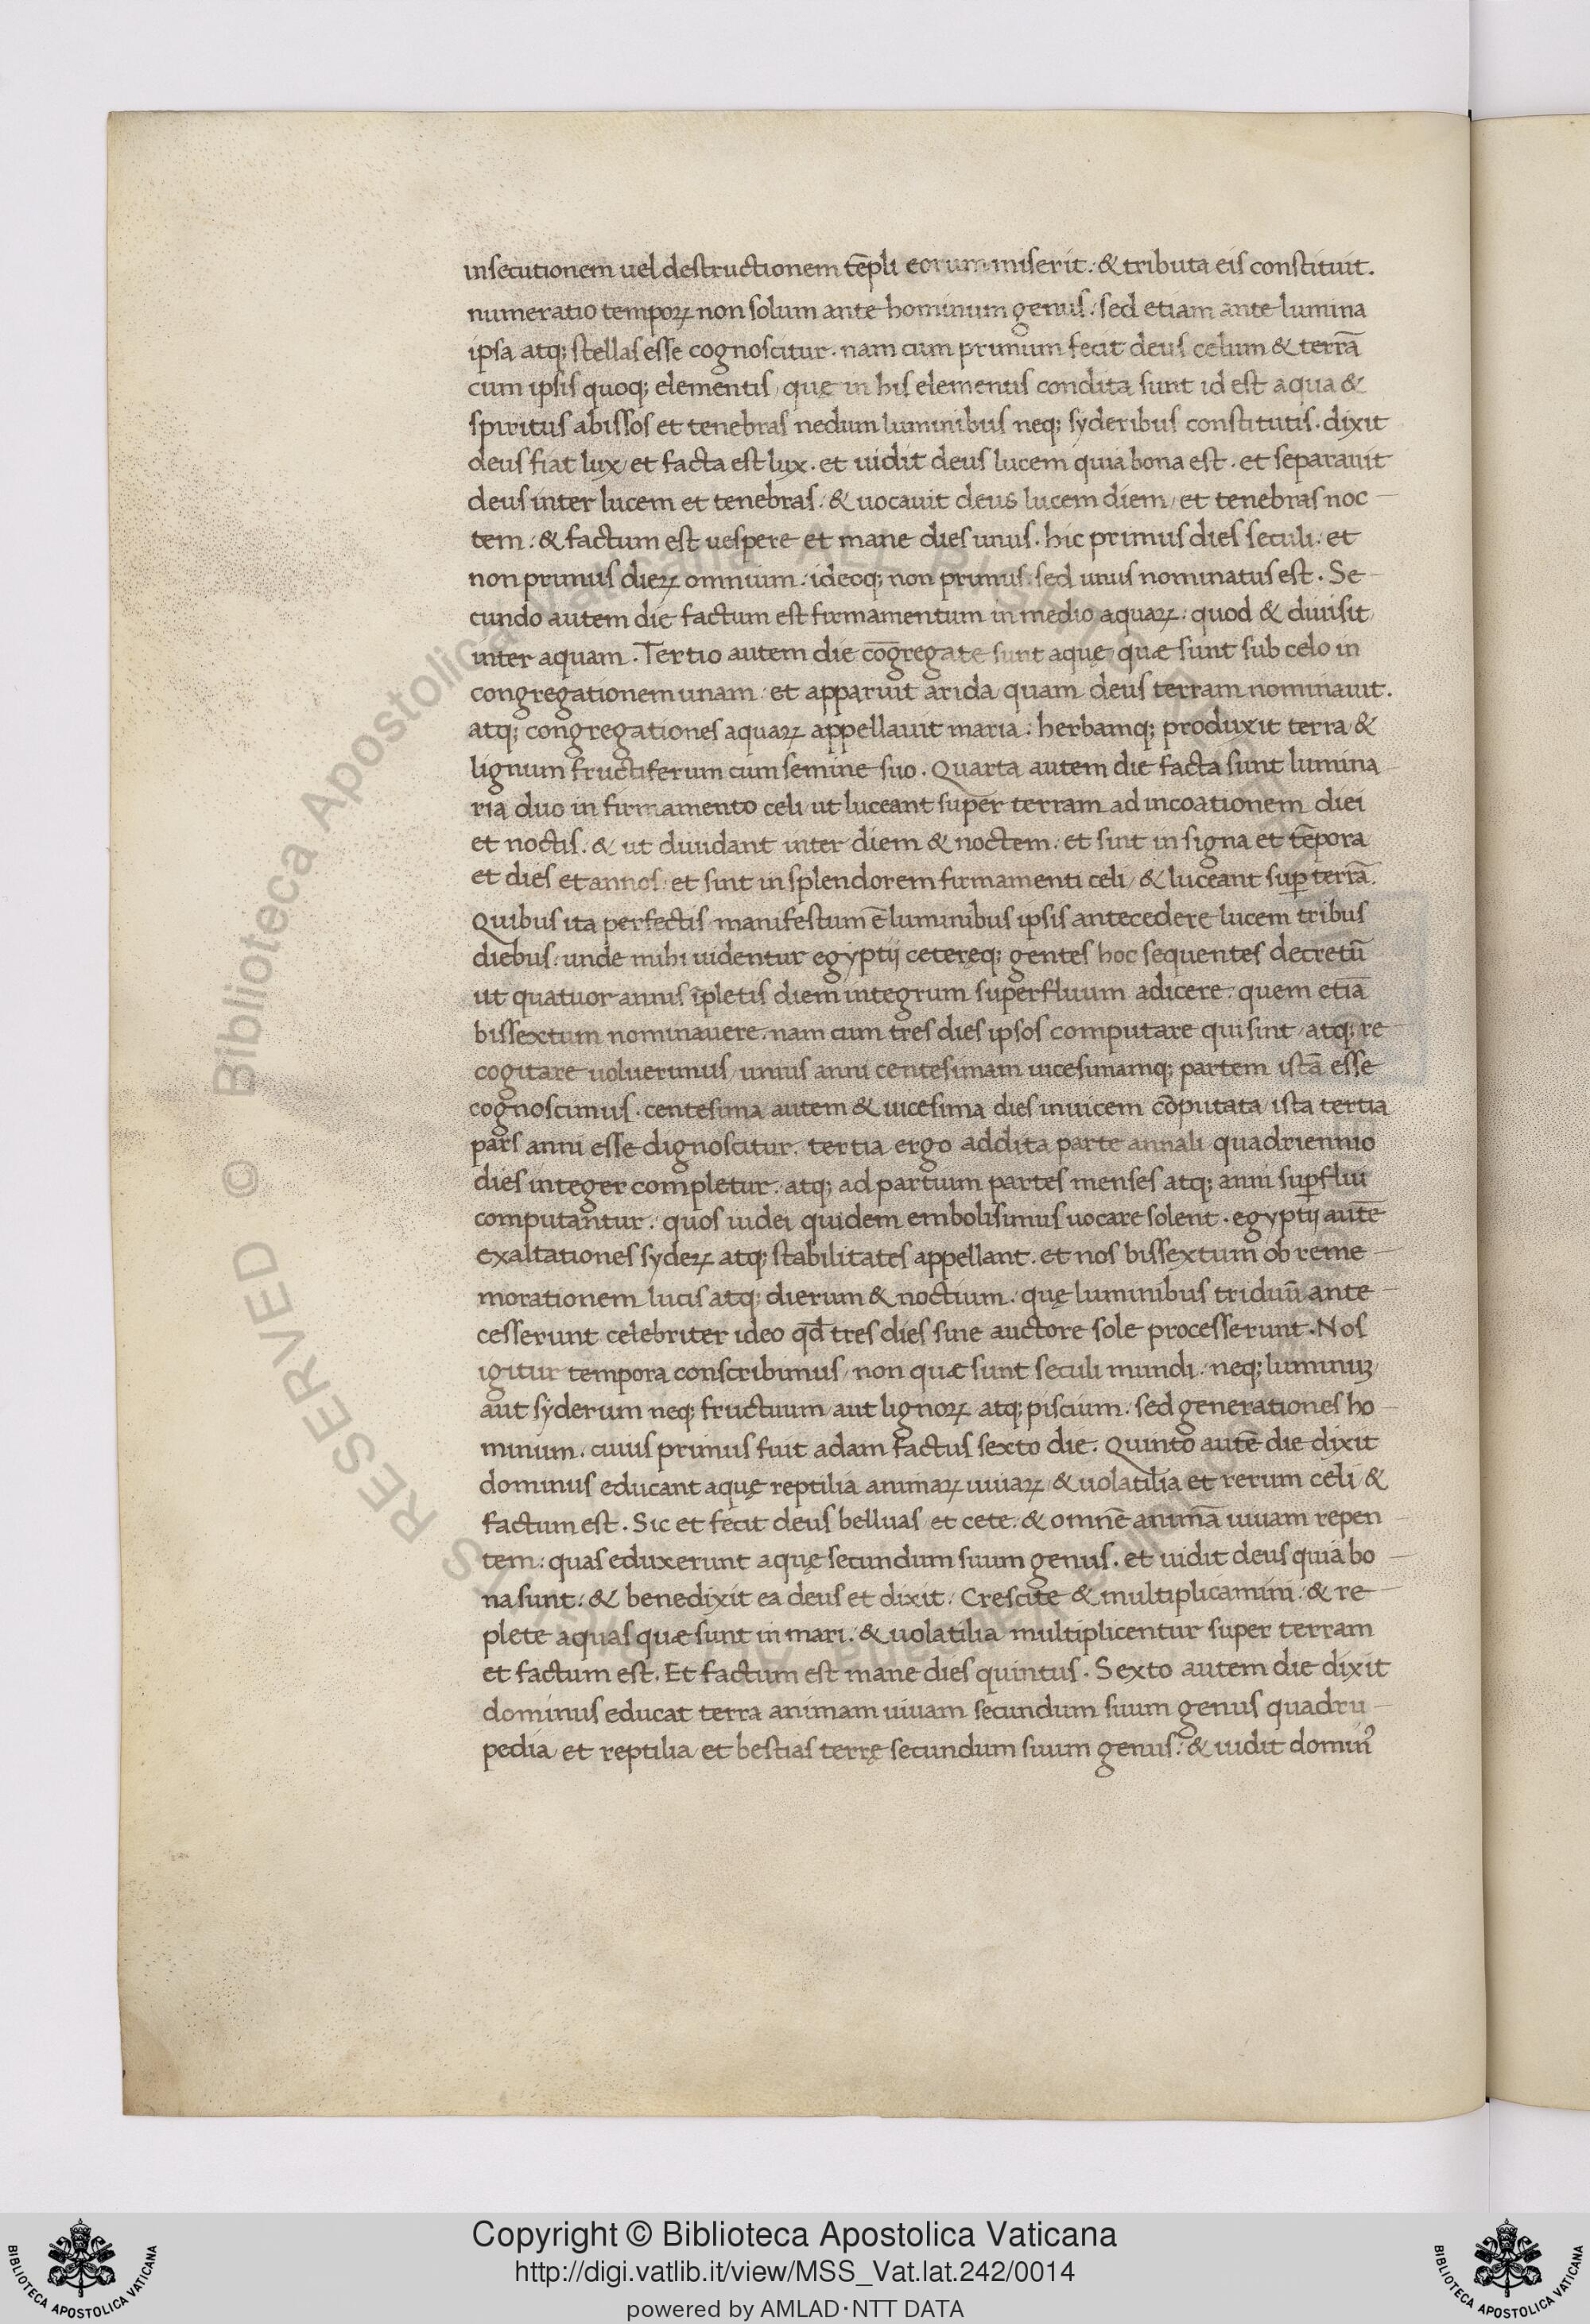 insecutionem uel destructionem tẽpli eorum miserit: & tributa eis constituit.
numeratio temporꝝ non solum ante hominum genus: sed etiam ante lumina
ipsa atq; stellas esse cognoscitur. nam cum primum fecit deus celum & terrã
cum ipsis quoq; elementis, quę in his elementis condita sunt id est aqua &
spiritus abissos et tenebras nedum luminibus neq; syderibus constitutis. dixit
deus fiat lux, et facta est lux. et uidit deus lucem quia bona est. et separauit
deus inter lucem et tenebras: & uocauit deus lucem diem, et tenebras noc
tem: & factum est uespere et mane dies unus. hic primus dies seculi: et
non primus dierꝝ omnium: ideoq; non primus: sed unus nominatus est. Se
cundo autem die factum est firmamentum in medio aquarꝝ: quod & diuisit
inter aquam. Tertio autem die cõgregate sunt aquę, quæ sunt sub celo in
congregationem unam: et apparuit arida, quam deus terram nominauit.
atq; congregationes aquarꝝ appellauit maria: herbamq; produxit terra &
lignum fructiferum cum semine suo. Quarta autem die facta sunt lumina
ria duo in firmamento celi, ut luceant super terram ad incoationem diei
et noctis. & ut diuidant inter diem & noctem: et sint in signa et tẽpora
et dies et annos: et sint in splendorem firmamenti celi, & luceant suꝑ terrã.
Quibus ita perfectis manifestum ẽ luminibus ipsis antecedere lucem tribus
diebus: unde mihi uidentur egyptij ceteręq; gentes hoc sequentes decretũ
ut quatuor annis ĩpletis diem integrum superfluum adicere: quem etiã
bissextum nominauere. nam cum tres dies ipsos computare qui sint, atq; re
cogitare uoluerimus, unius anni centesimam uicesimamq; partem istã esse
cognoscimus. centesima autem & uicesima dies inuicem cõputata ista tertia
pars anni esse dignoscitur. tertia ergo addita parte annali quadriennio
dies integer completur. atq; ad partium partes menses atq; anni suꝑflui
computantur. quos iudei quidem embolisimus uocare solent. egyptij autẽ
exaltationes syderꝝ atq; stabilitates appellant. et nos bissextum ob reme
morationem lucis atq; dierum & noctium. quę luminibus triduũ ante
cesserunt celebriter ideo qđ tres dies sine auctore sole processerunt. Nos
igitur tempora conscribimus, non quæ sunt seculi mundi: neq; luminuꝫ
aut syderum neq; fructuum aut lignorꝝ atq; piscium. sed generationes ho
minum. cuius primus fuit adam factus sexto die. Quinto autẽ die dixit
dominus educant aquę reptilia animarꝝ uiuarꝝ, & uolatilia et rerum celi, &
factum est. Sic et fecit deus belluas, et cete. & omnẽ animã uiuam repen
tem: quas eduxerunt aquę secundum suum genus. et uidit deus quia bo
na sunt: & benedixit ea deus et dixit. Crescite & multiplicamini: & re
plete aquas quæ sunt in mari: & uolatilia multiplicentur super terram
et factum est. Et factum est mane dies quintus. Sexto autem die dixit
dominus educat terra animam uiuam secundum suum genus quadru
pedia, et reptilia, et bestias terrę secundum suum genus: & uidit domin᾽
Copyright © Biblioteca Apostolica Vaticana
http://digi.vatlib.it/view/MSS_Vat.lat.242/0014
powered by AMLAD·NTT DATA
BIBLIOTECA APOSTOLICA VATICANA
BIBLIOTECA APOSTOLICA VATICANA